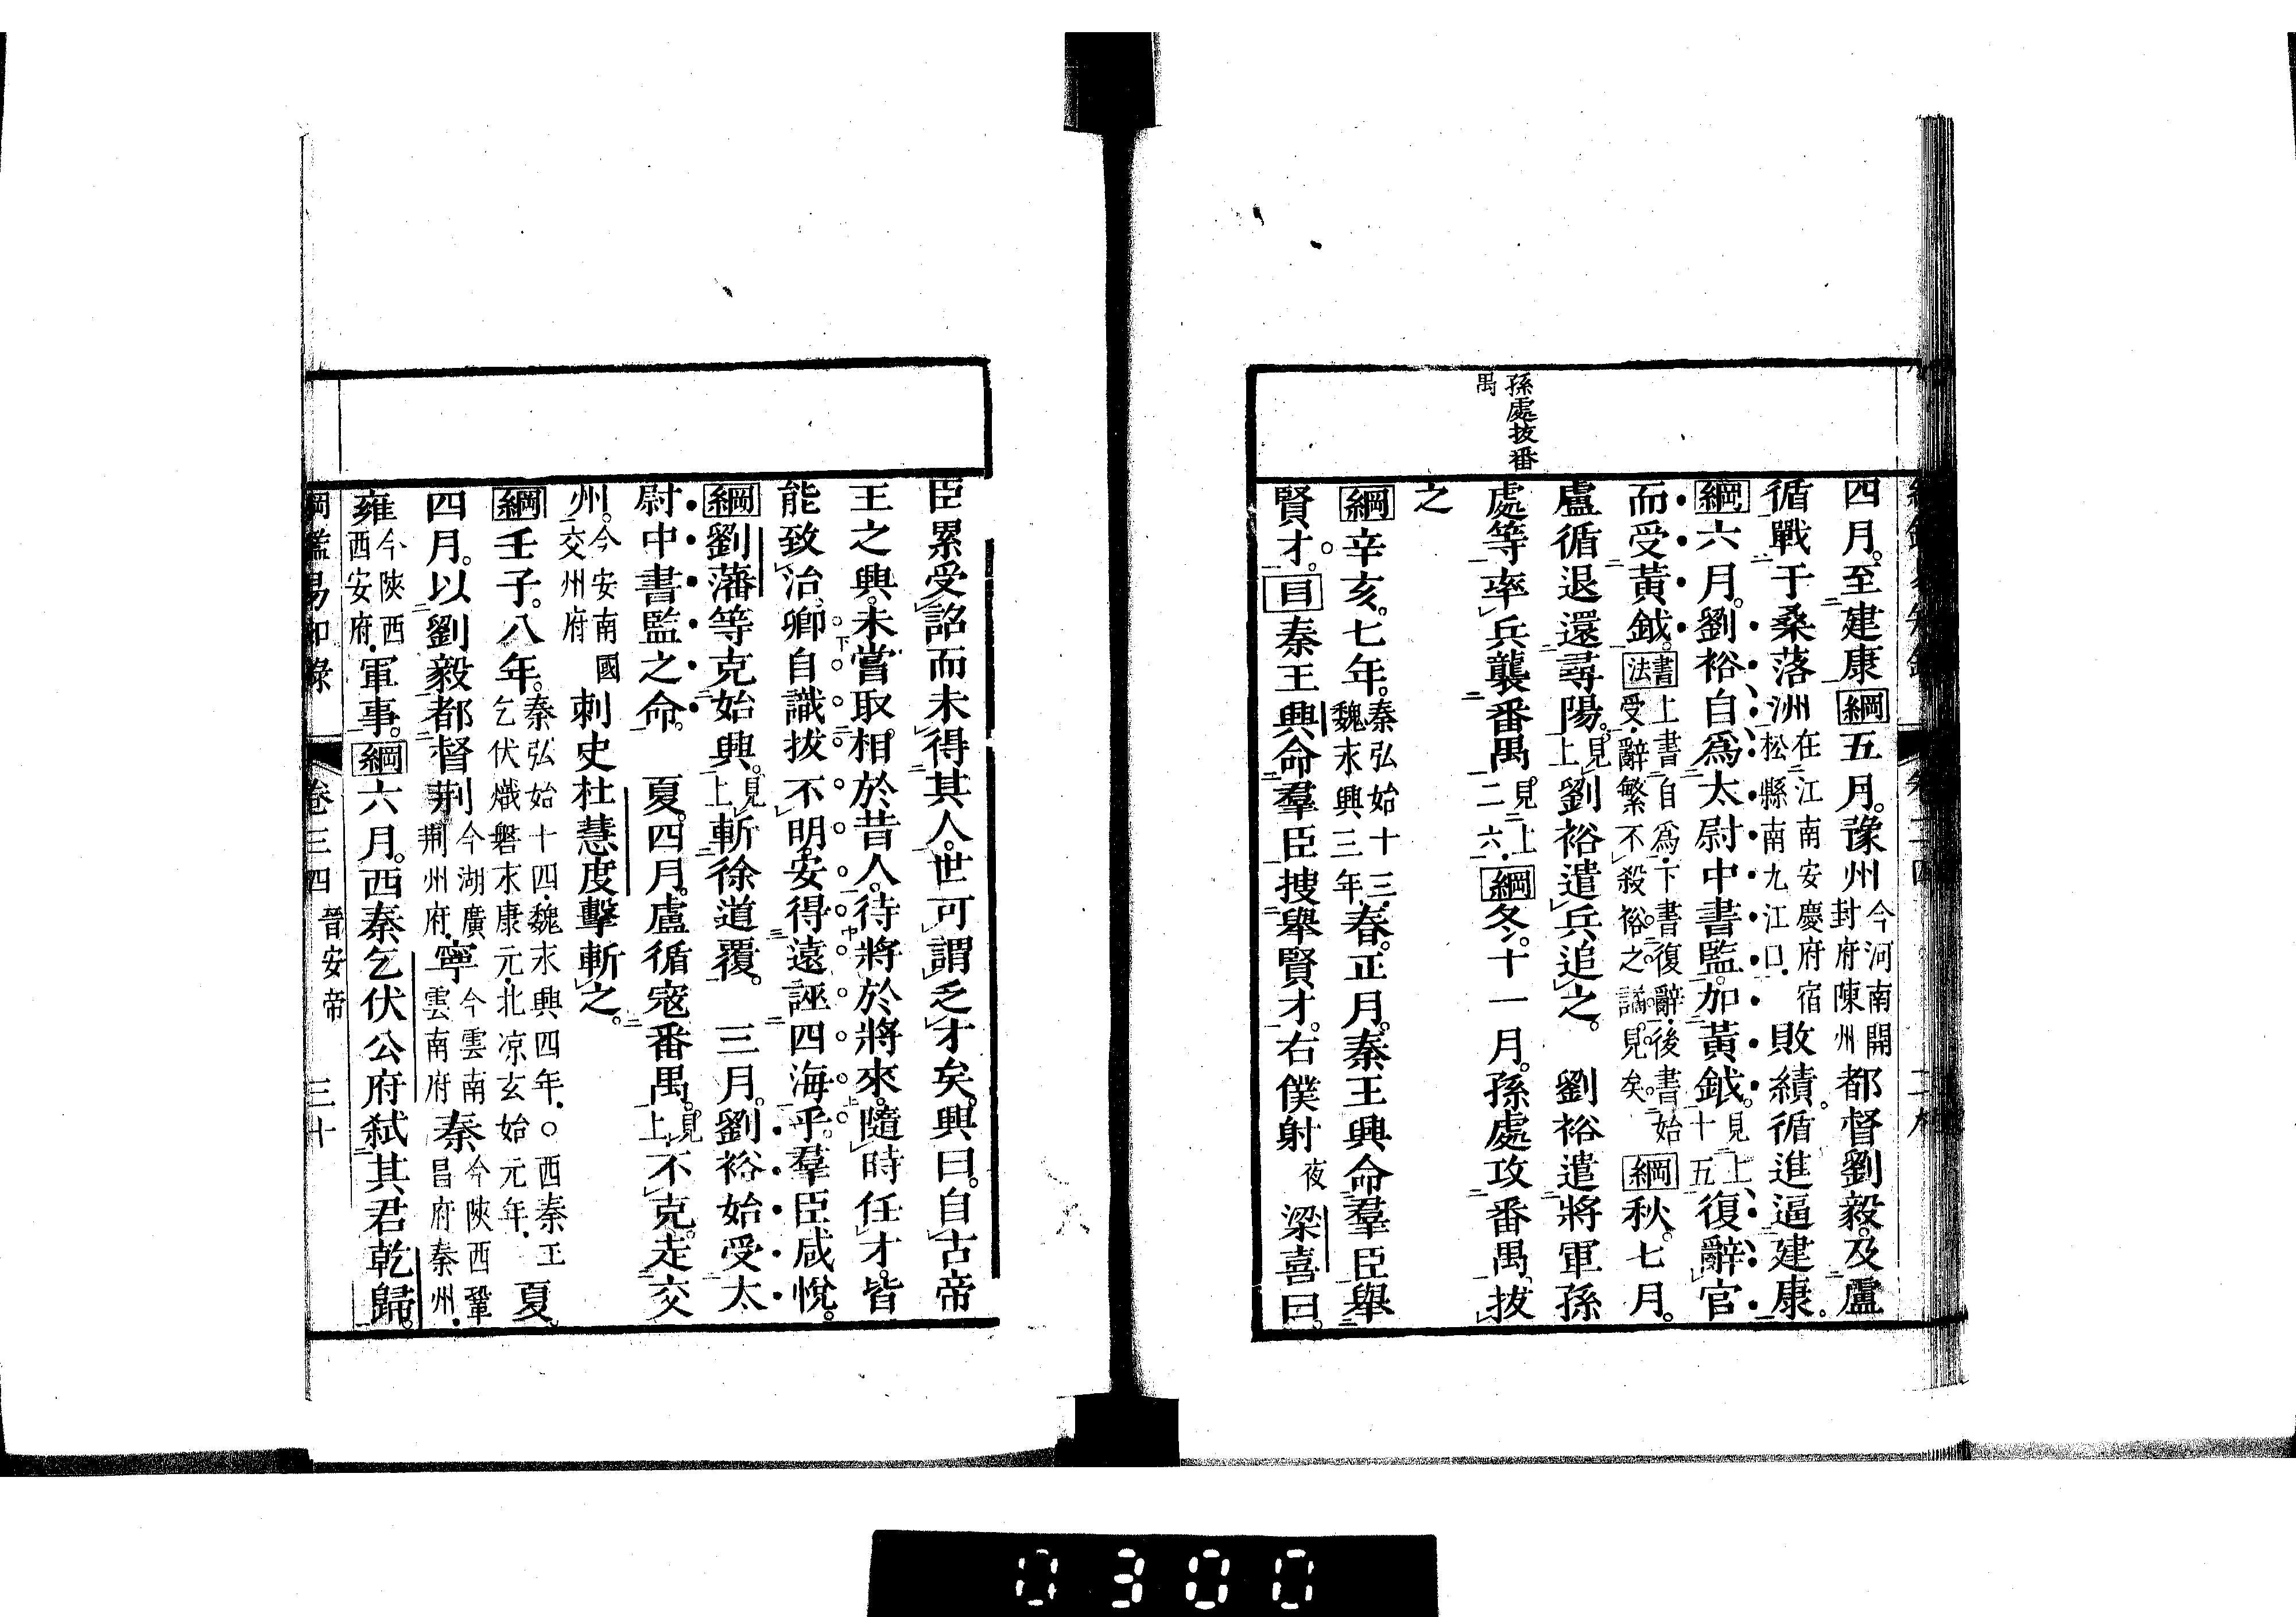 孫處拔番
禺
四月。至建康綱五月。豫州今河南開封府陳州都督劉毅。及盧
循戰于桑落洲在江南安慶府宿松縣南九江口。敗績。循進逼建康。
綱六月。劉裕自爲太尉中書監。加黃鉞。見上十五復辭官
而受黃鉞。書法上書自爲。下書復辭。後書始受。辭繁不殺。裕之譎。見矣。綱秋。七月。
盧循退還尋陽。見上劉裕遣兵追之。 劉裕遣將軍孫
處等率兵襲番禺。見上二六。綱冬。十一月。孫處攻番禺。拔
之
綱辛亥。七年。秦弘始十三。魏永興三年。春。正月。秦王興命羣臣舉
賢才。目秦王興命羣臣搜舉賢才。右僕射夜梁喜曰。
臣累受詔而未得其人。世可謂乏才矣。興曰。自古帝
王之興。未嘗取相於昔人。待將於將來。隨時任才。皆
能致治。卿自識拔不明。安得遠誣四海乎。羣臣咸悅。
綱劉藩等克始興。見上斬徐道覆。 三月。劉裕始受太
尉中書監之命。 夏。四月。盧循寇番禺。見上不克。走交
州。今安南國交州府刺史杜慧度擊斬之。
綱壬子。八年。秦弘始十四。魏永興四年。○西秦王乞伏熾磐永康元。北凉玄始元年。夏。
四月。以劉毅都督荆今湖廣荆州府。寧今雲南雲南府秦今陝西鞏昌府秦州。
雍今陝西西安府。軍事。綱六月。西秦乞伏公府弑其君乾歸。
綱鑑易知錄 卷三四 晉安帝 三十
0300